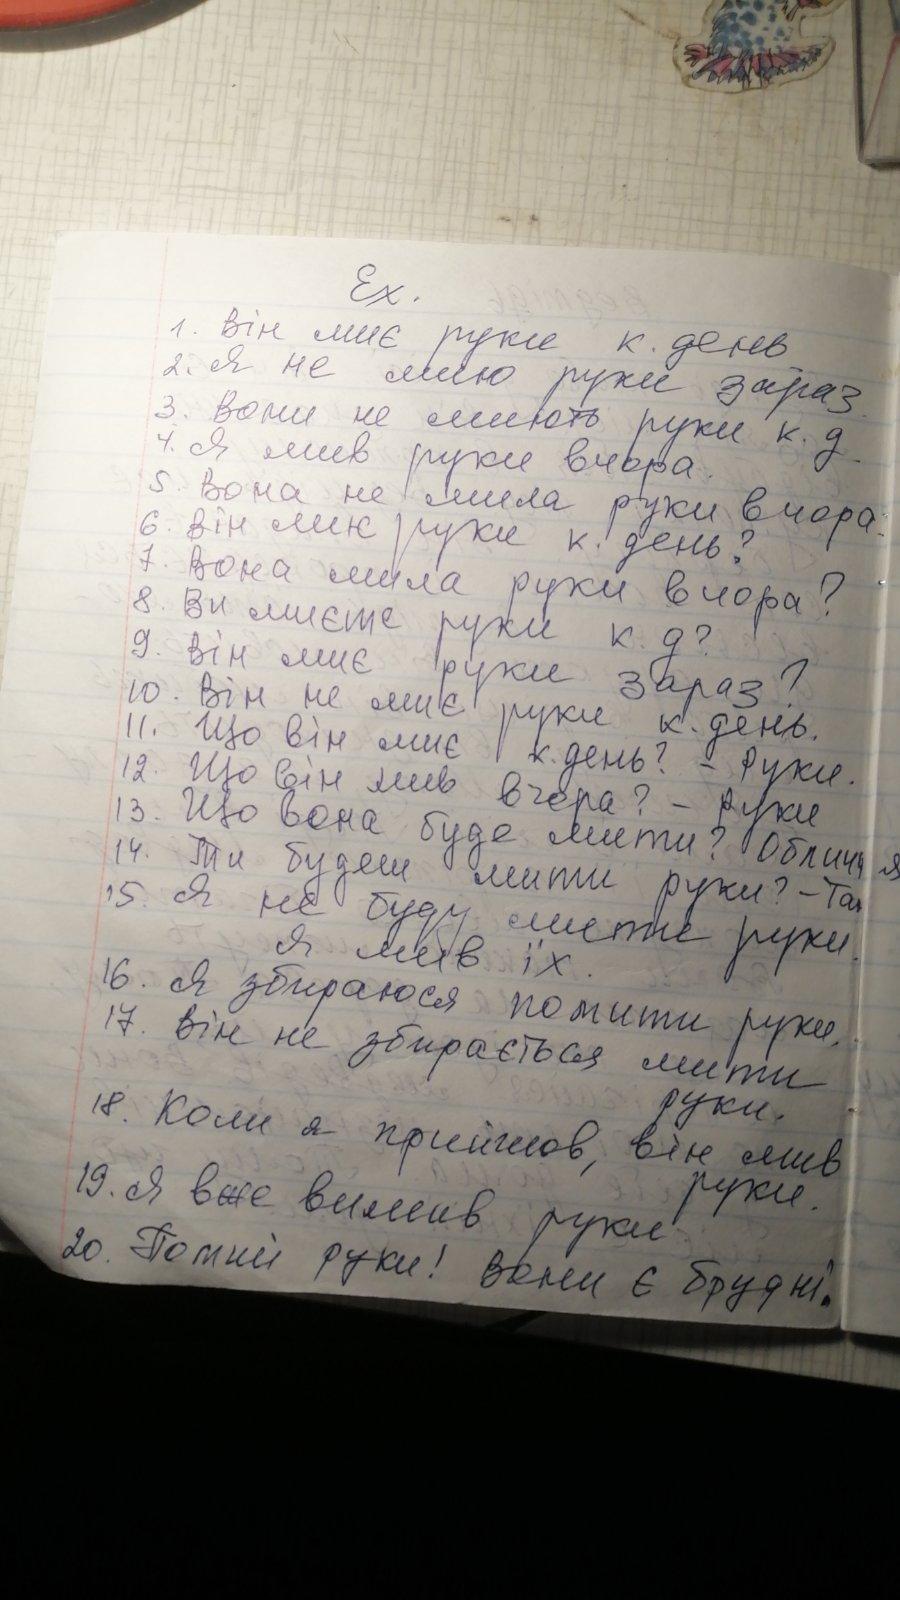 Ex.
1. Він миє руки к. день
2. Я не мию руки зараз.
3. Вони не миють руки к. д.
4. Я мив руки вчора.
5. Вона не мила руки вчора.
6. Він миє руки к. день?
7. Вона мила руки вчора?
8. Ви миєте руки к. д?
9. Він миє руки зараз?
10. Він не миє руки к. день.
11. Що він миє к. день? - Руки.
12. Що він мив вчора? - Руки
13. Що вона буде мити? Обличчя
14. Ти будеш мити руки? - Так
15. Я не буду мити руки.
Я мив їх.
16. Я збираюся помити руки.
17. Він не збирається мити
руки.
18. Коли я прийшов, він мив
руки.
19. Я вже вимив руки.
20. Помий руки! Вони є брудні.